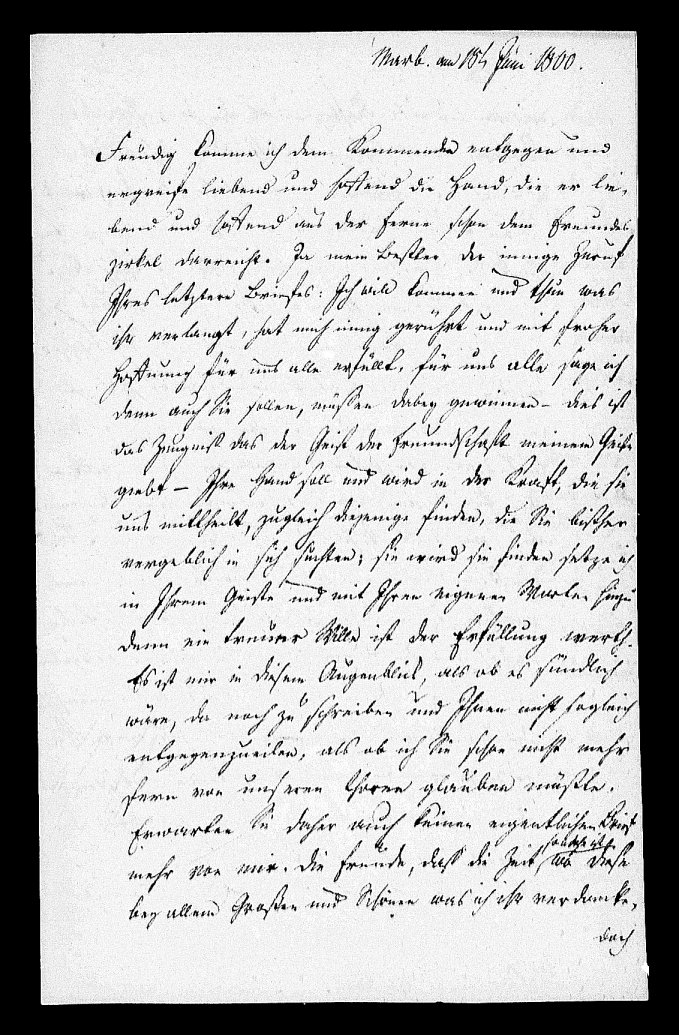 Marb. am 18t Juni 1800.
Freudig komme ich dem Kommenden entgegen und
ergreife liebend und hoffend die Hand, die er lie-
bend und hoffend aus der Ferne schon dem Freundes
zirkel darreicht. Ja mein Bester der innige Zuruf
Ihres letztern Briefes: Ich will kommen und thun was
ihr verlangt, hat mich innig gerührt und mit froher
Hoffnung für uns alle erfüllt, für uns alle sage ich
denn auch Sie sollen, müssen dabey gewinnen – dies ist
das Zeugniß das der Geist der Freundschaft meinem Geiste
giebt – Ihre Hand soll und wird in der Kraft, die sie
uns mittheilt, zugleich diejenige finden, die Sie bisher
vergeblich in sich suchten; sie wird sie finden setze ich
in Ihrem Geiste und mit Ihren eigenen Worten hinzu
denn ein treurer Wille ist der Erfüllung werth.
Es ist mir in diesem Augenblick, als ob es sündlich
wäre, da noch zu schreiben und Ihnen nicht sogleich
entgegenzueilen, als ob ich Sie schon nicht mehr
fern von unseren Thoren glauben müßte.
Erwarten Sie daher auch keinen eigentlichen Brief
mehr von mir. Die Freude, daß die Zeit, wo diese
bey allem Großen und Schönen was ich ihr verdanke,
doch